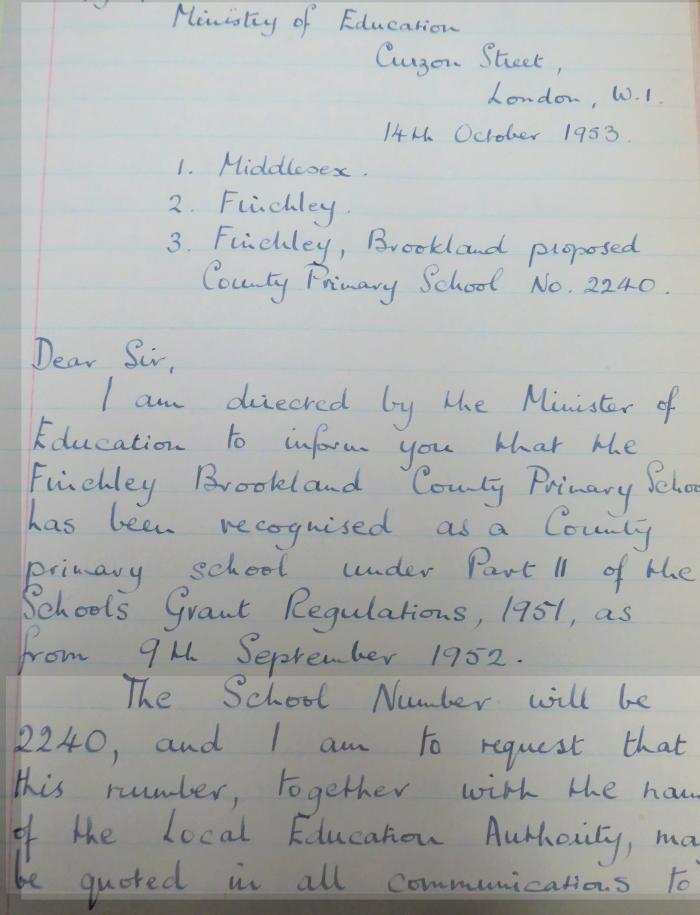 Ministry of Education
Curzon Street,
London, W.1.
14th October 1953.
1. Middlesex.
2. Finchley.
3. Finchley, Brookland proposed
County Primary School No. 2240.
Dear Sir,
I am directed by the Minister of
Education to inform you that the
Finchley Brookland County Primary Schoo
has been recognised as a County
primary school under Part II of the
Schools Grant Regulations, 1951, as
from 9th September 1952.
The School Number will be
2240, and I am to request that
this number, together with the nam
of the Local Education Authority, ma
be quoted in all communications to